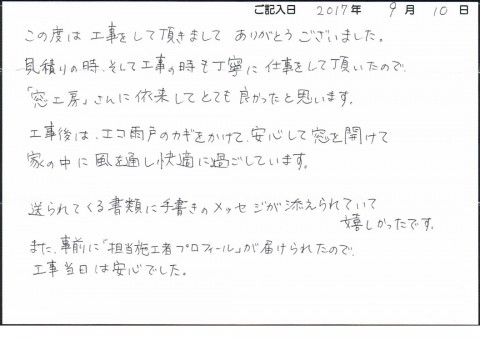 ご記入日 2017年 9月 10日
この度は工事をして頂きまして ありがとうございました。
見積りの時、そして工事の時も丁寧に仕事をして頂いたので、
「窓工房」さんに依来してとても良かったと思います。
工事後は、エコ雨戸のカギをかけて、安心して窓を開けて
家の中に風を通し快適に過ごしています。
送られてくる書類に手書きのメッセージが添えられていて
嬉しかったです。
また、事前に「担当施工者プロフィール」が届けられたので、
工事当日は安心でした。